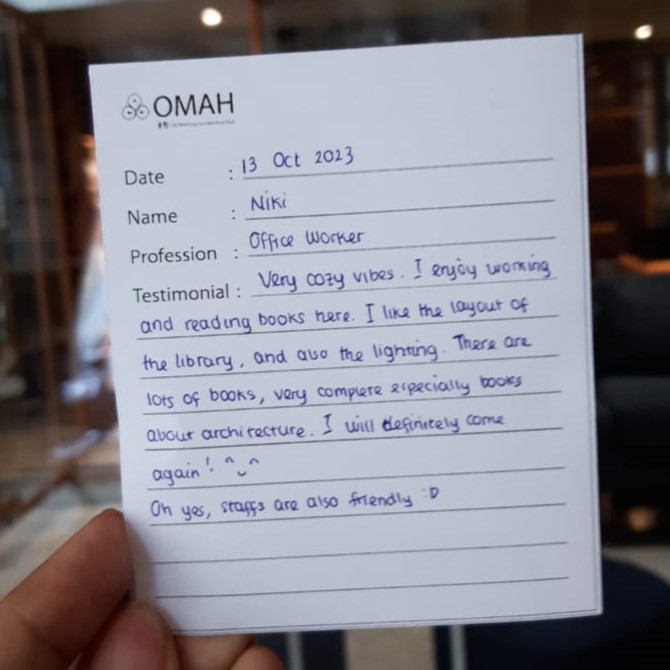 OMAH
Date : 13 Oct 2023
Name : Niki
Profession : Office Worker
Testimonial : Very cozy vibes. I enjoy working
and reading books here. I like the layout of
the library, and also the lighting. There are
lots of books, very complete especially books
about architecture. I will definitely come
again! ^‿^
Oh yes, staffs are also friendly :D